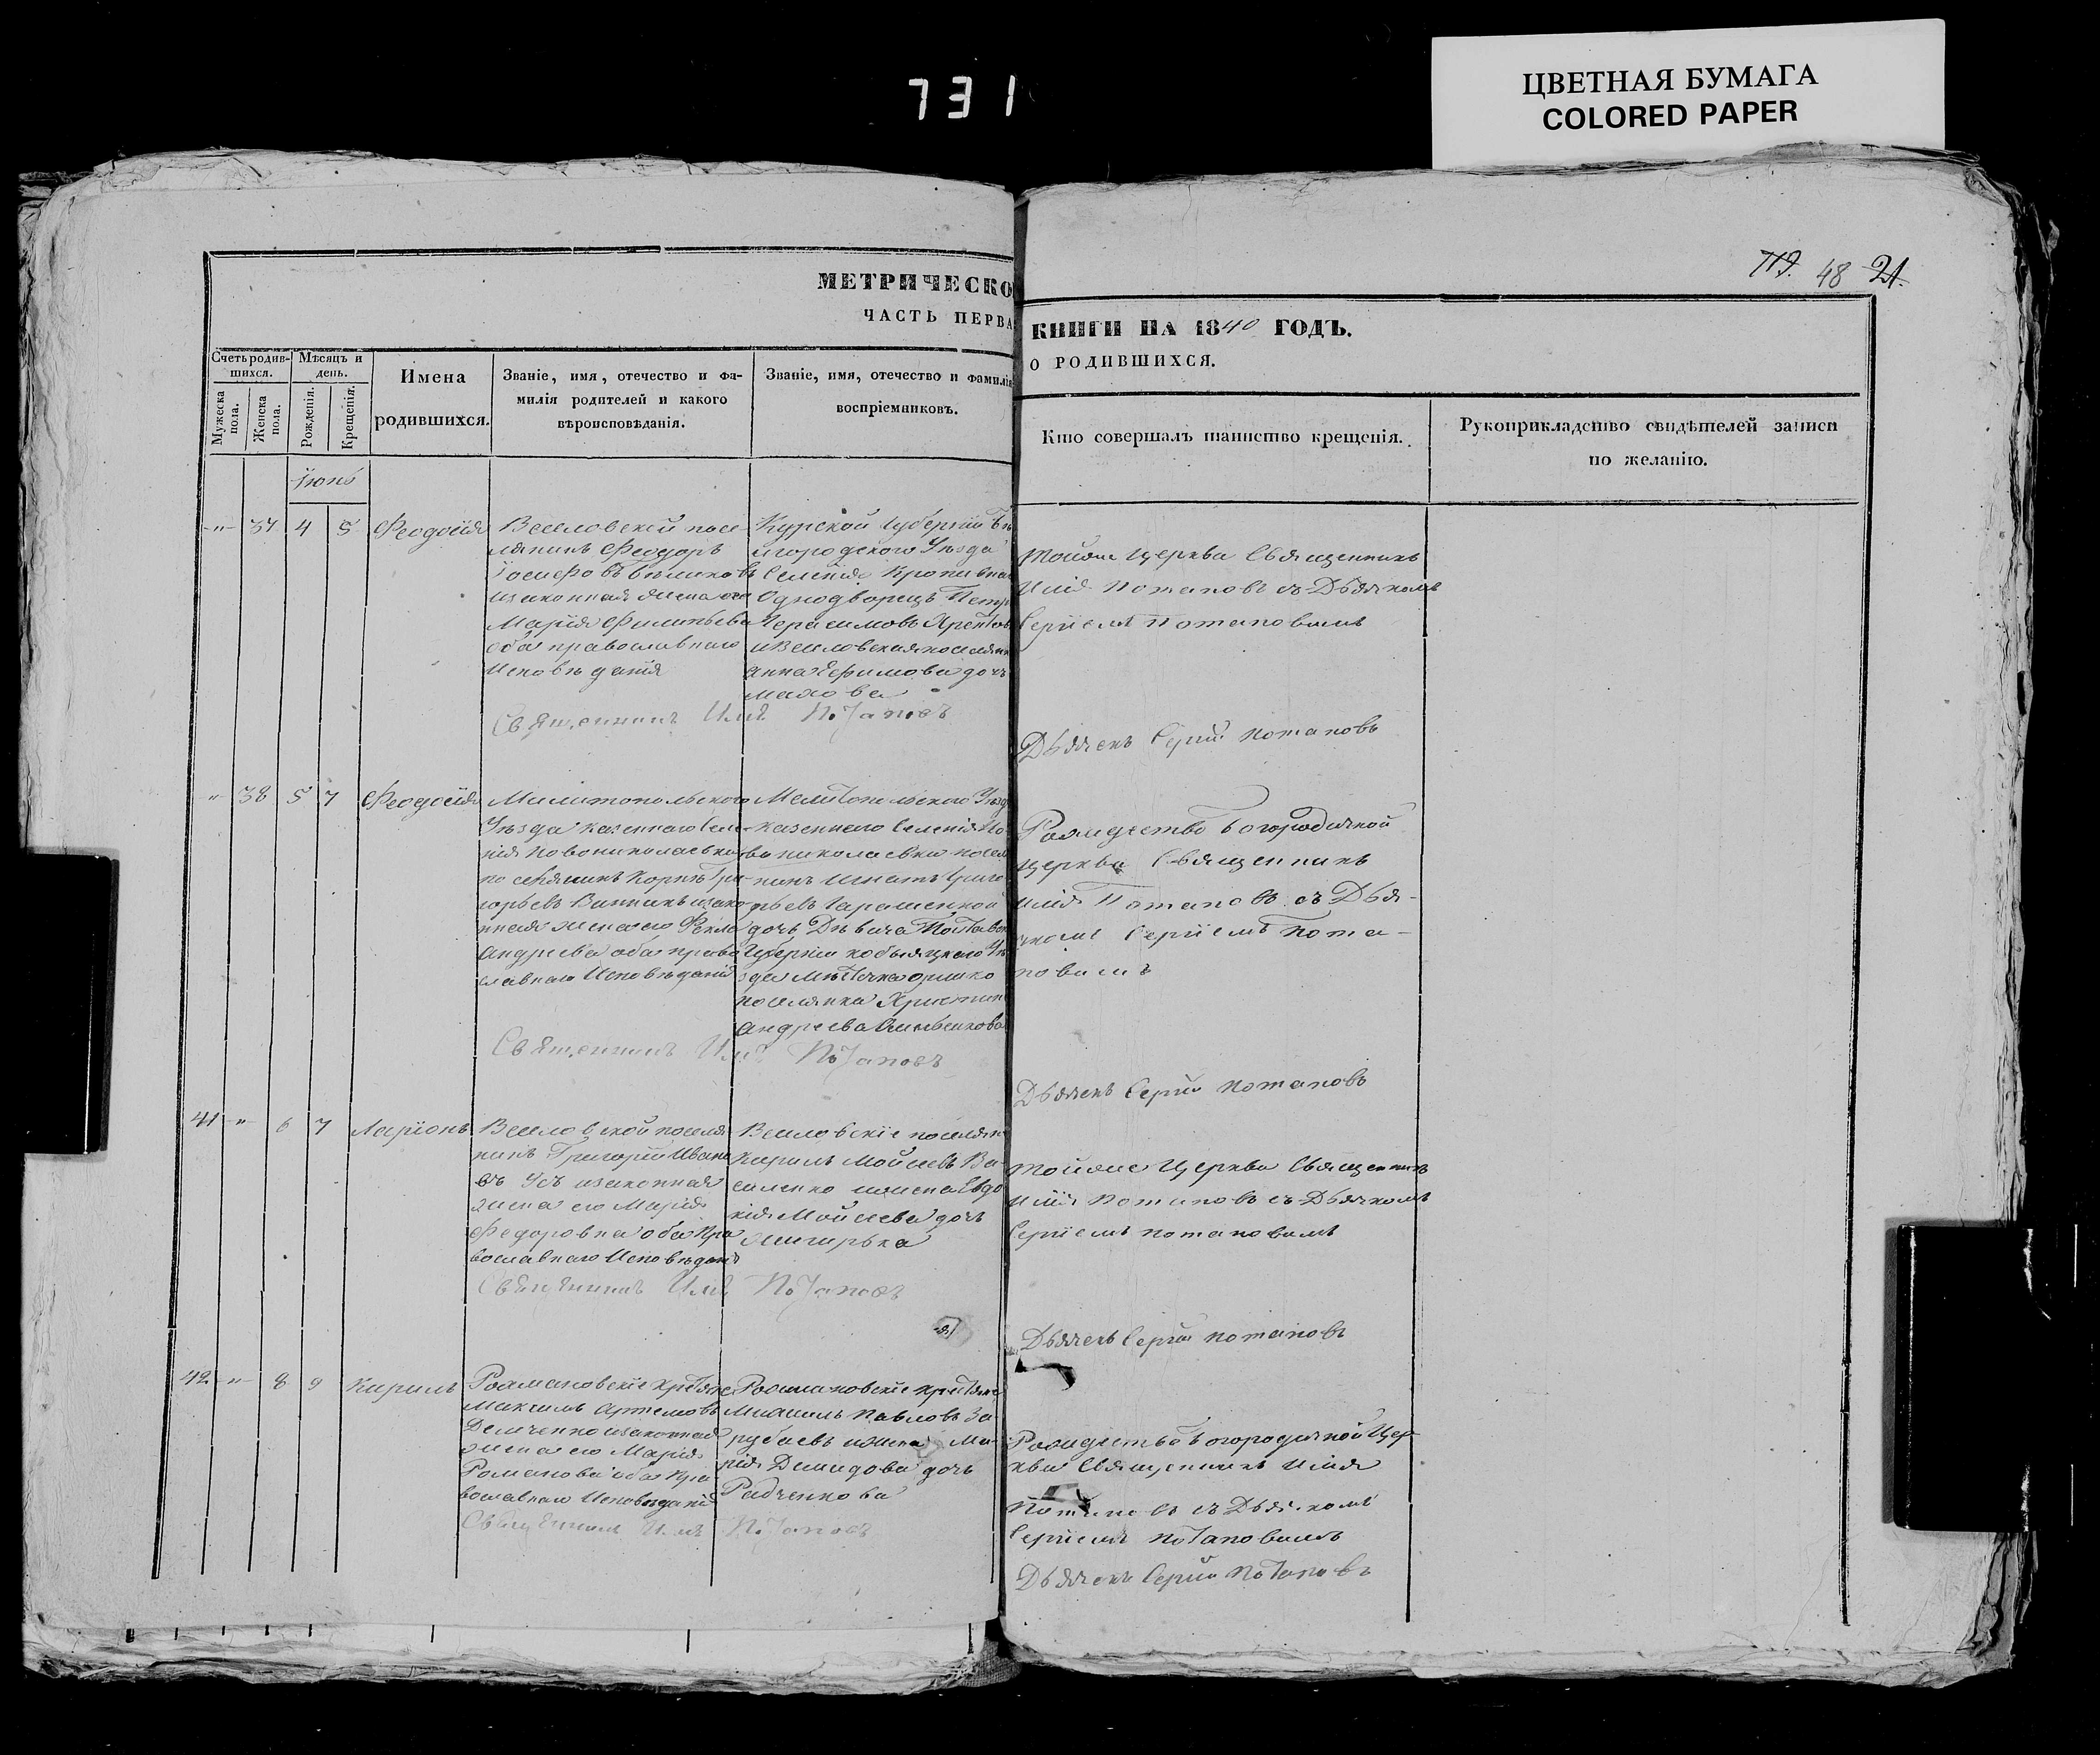 731
ЦВЕТНАЯ БУМАГА
COLORED PAPER
119. 48 21.
МЕТРИЧЕСКО
ЧАСТЬ ПЕРВА
КНИГИ НА 1840 ГОДЪ.
О РОДИВШИХСЯ.
Счетъ родив-
шихся.
Мужеска
пола.
Женска
пола.
Мѣсяцъ и
день.
Рожденія.
Крещенія.
Имена
родившихся.
Званіе, имя, отечество и фа-
милія родителей и какого
вѣроисповѣданія.
Званіе, имя, отечество и фамилія
воспріемниковъ.
Кто совершалъ таинство крещенія.
Рукоприкладство свидѣтелей записи
по желанію.
Іюнь
-"- 37 4 5 Феодосія
Веселовской посе
лянинъ Феодоръ
Іосифовъ Бѣликовъ
изаконная жена его
Марія Филипьева
оба православнаго
Исповѣданія
Курской Губерніи Бѣ
лгородскаго Уѣзда
Селенія
Однодворецъ Петръ
Герасимовъ
и Веселовская поселян
анна Ефимова дочь
махова
Священникъ Илія Потаповъ
тойже Церкви Священникъ
Илія Потаповъ съ Дьячкомъ
Сергіемъ Потаповымъ
Дьячекъ Сергій Потаповъ
" 38 5 7 Феодосія
Милитопольскаго
Уѣзда казеннаго Селе-
нія Новониколаевки
поселянинъ Корнѣ Гри-
горьевъ изако
нная жена его Фекла
андреева оба право
славнаго Исповѣданія
Мелитопольскаго Уѣзд
казеннаго Селенія Но-
вониколаевки посел
нинъ Игнатъ Григо
рьевъ
дочь Дѣвица Полтавск
Губерніи кобыляцкаго Уѣ
зда мѣстечка
поселянка Христин
андреева
Священникъ Илія Потаповъ
Рождество Богородичной
Церкви Священникъ
Илія Потаповъ съ Дья-
чкомъ Сергіемъ Пота-
повымъ
Дьячекъ Сергій Потаповъ
41 -"- 6 7 Ларіонъ
Веселовской поселя
нинъ Григорій Ивано
въ Усъ изаконная
жена его Марія
Федоровна оба Пра
вославнаго Исповѣданія
Веселовскіе поселян
Кирилъ Мойсеевъ Ва-
силенко ижена Евдо
кія Мойсеева дочь
Священникъ Илія Потаповъ
тойже Церкви Священникъ
Илія Потаповъ съ Дьячкомъ
Сергіемъ Потаповымъ
Дьячекъ Сергій Потаповъ
42 -"- 8 9 Кирилъ
Максимъ Артемовъ
Демченко изаконная
жена его Марія
Романова оба Пра
вославнаго Исповѣданія
Михаилъ Павловъ За-
рубаевъ ижена Ма-
рія Демидова дочь
Радченкова
Священникъ Илія Потаповъ
Рождество Богородичной Цер
кви Священникъ Илія
Потаповъ съ Дьячкомъ
Сергіемъ Потаповымъ
Дьячекъ Сергій Потаповъ